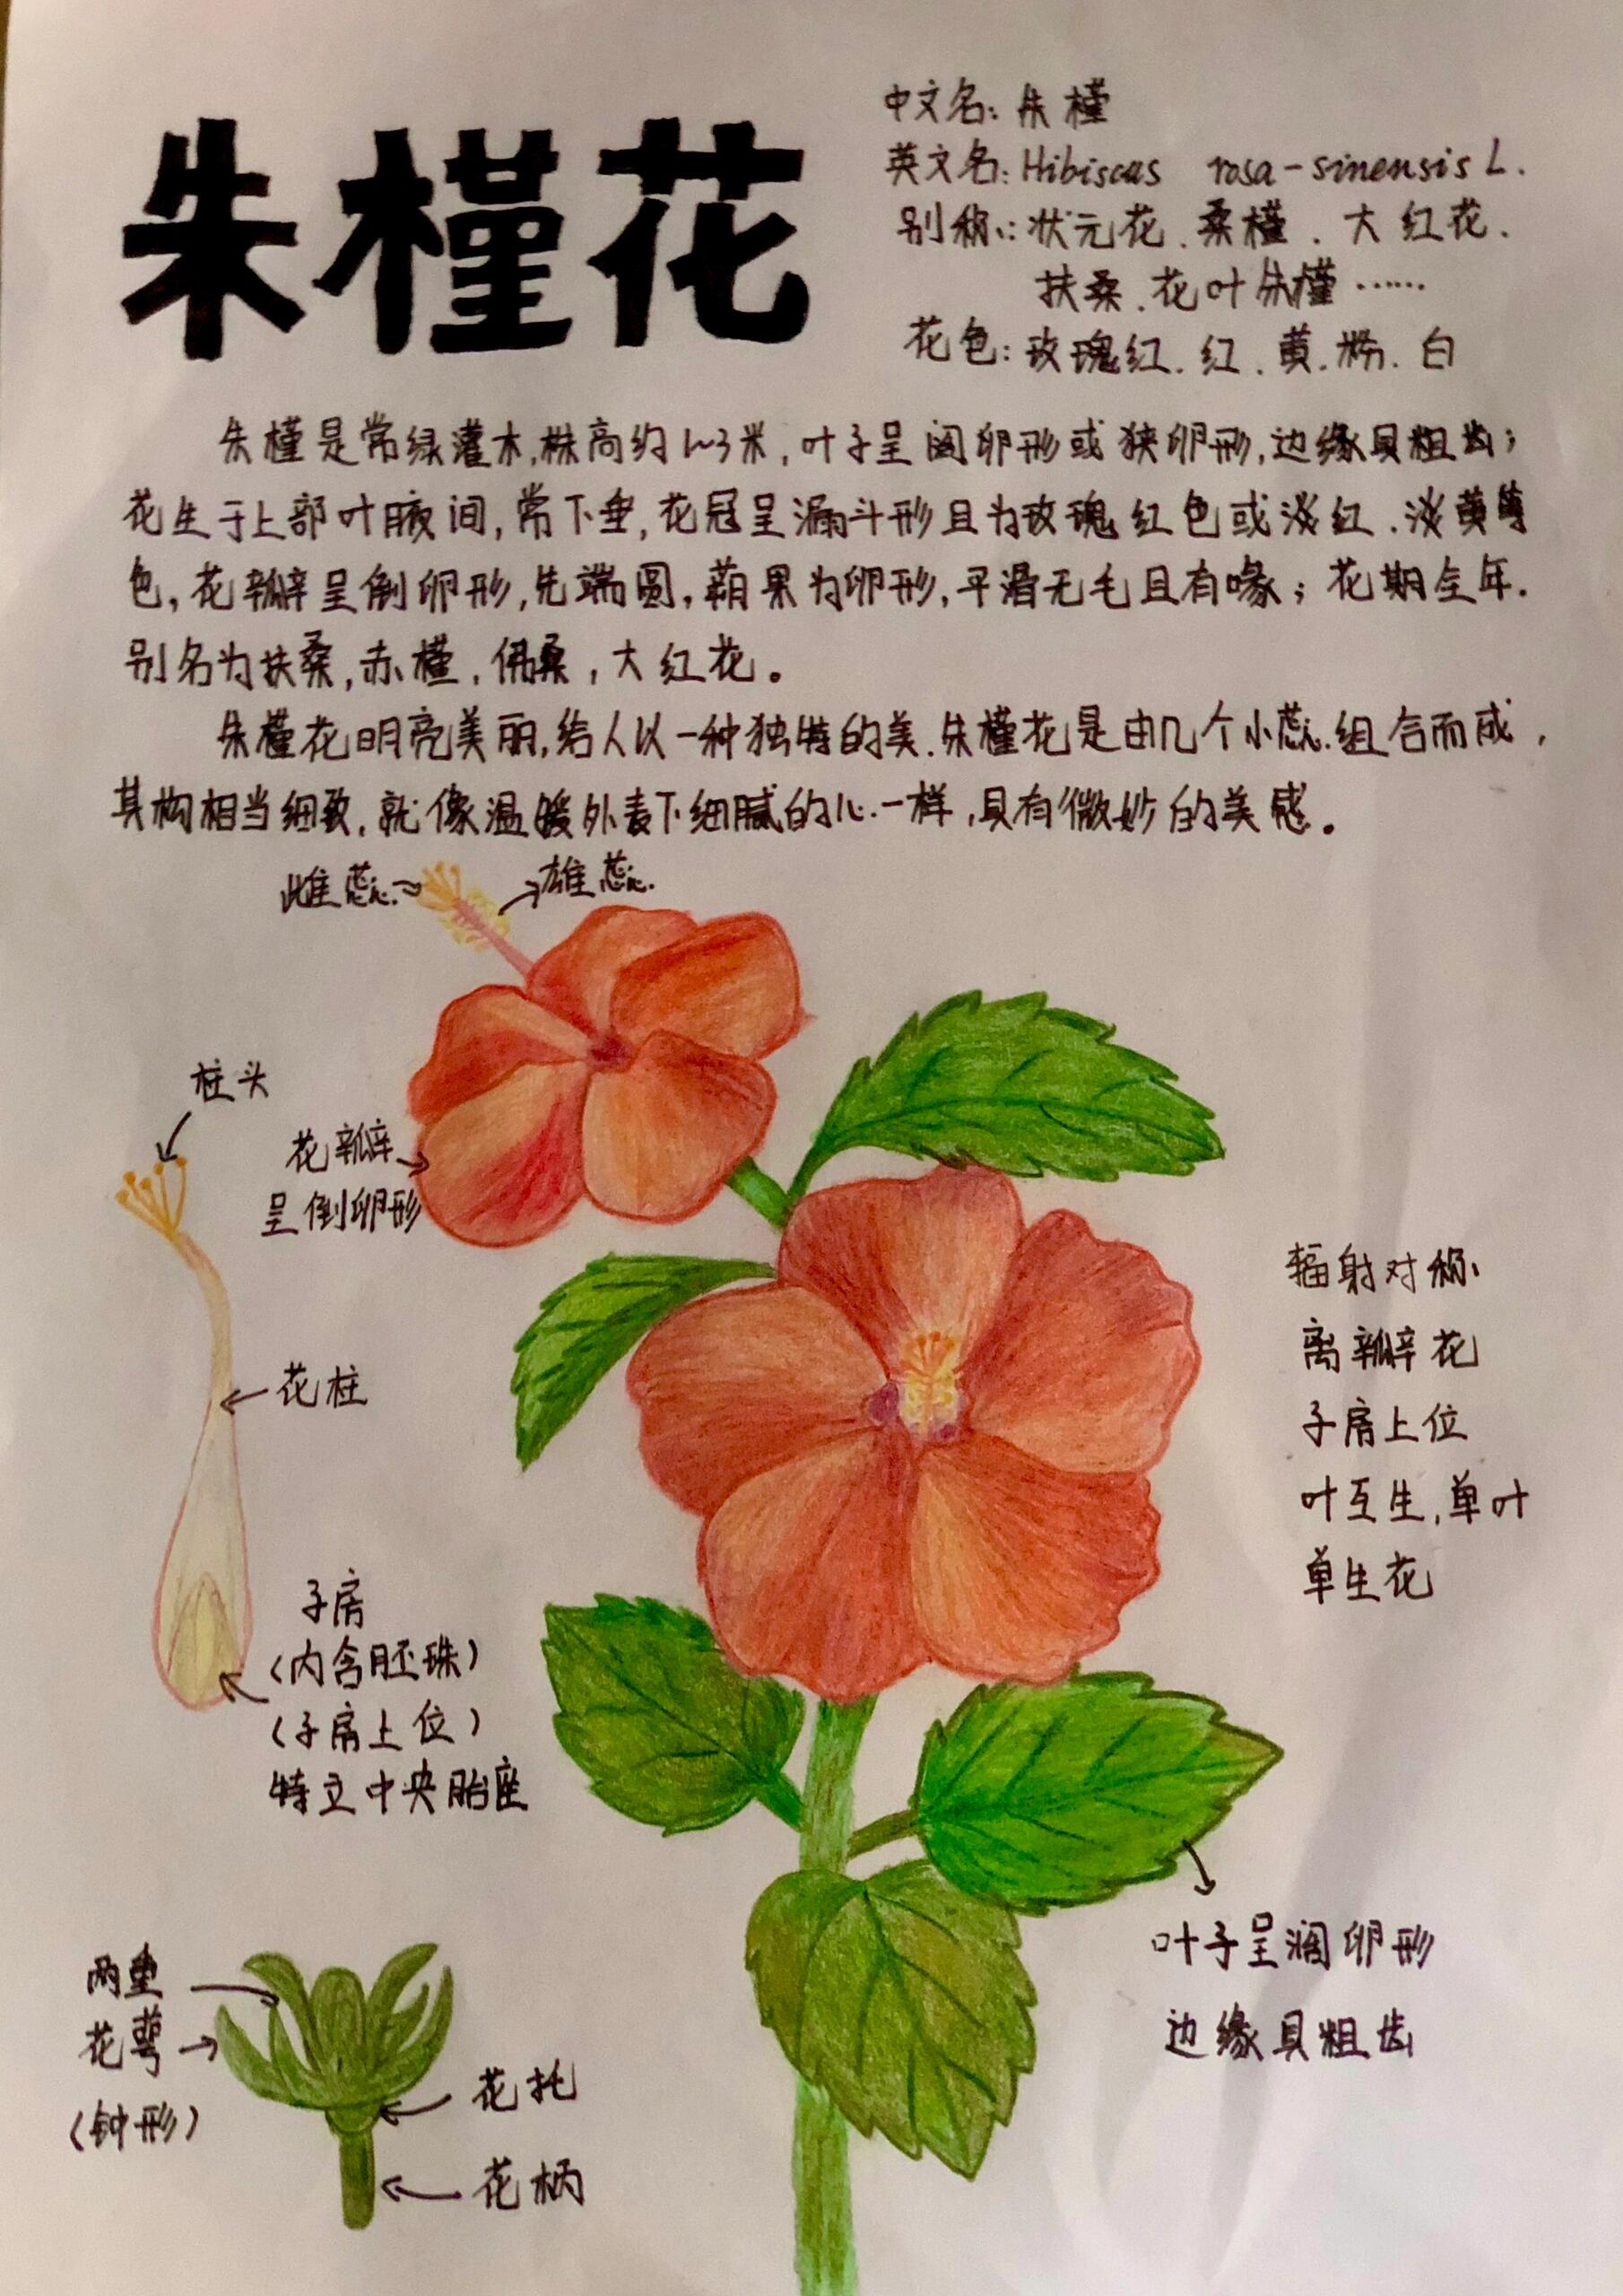 朱槿花
中文名：朱槿
英文名：Hibiscus rosa-sinensis L.
别称：状元花、桑槿、大红花、
扶桑、花叶朱槿……
花色：玫瑰红、红、黄、粉、白
朱槿是常绿灌木，株高约1~3米，叶子呈阔卵形或狭卵形，边缘具粗齿；
花生于上部叶腋间，常下垂，花冠呈漏斗形且为玫瑰红色或淡红、淡黄等
色，花瓣呈倒卵形，先端圆，蒴果为卵形，平滑无毛且有喙；花期全年.
别名为扶桑，赤槿，佛桑，大红花。
朱槿花明亮美丽，给人以一种独特的美.朱槿花是由几个小蕊组合而成，
其构相当细致，就像温暖外表下细腻的心一样，具有微妙的美感。
雌蕊
雄蕊
柱头
花瓣
呈倒卵形
辐射对称
离瓣花
子房上位
叶互生，单叶
单生花
花柱
子房
（内含胚珠）
（子房上位）
特立中央胎座
叶子呈阔卵形
边缘具粗齿
两重
花萼
（钟形）
花托
花柄